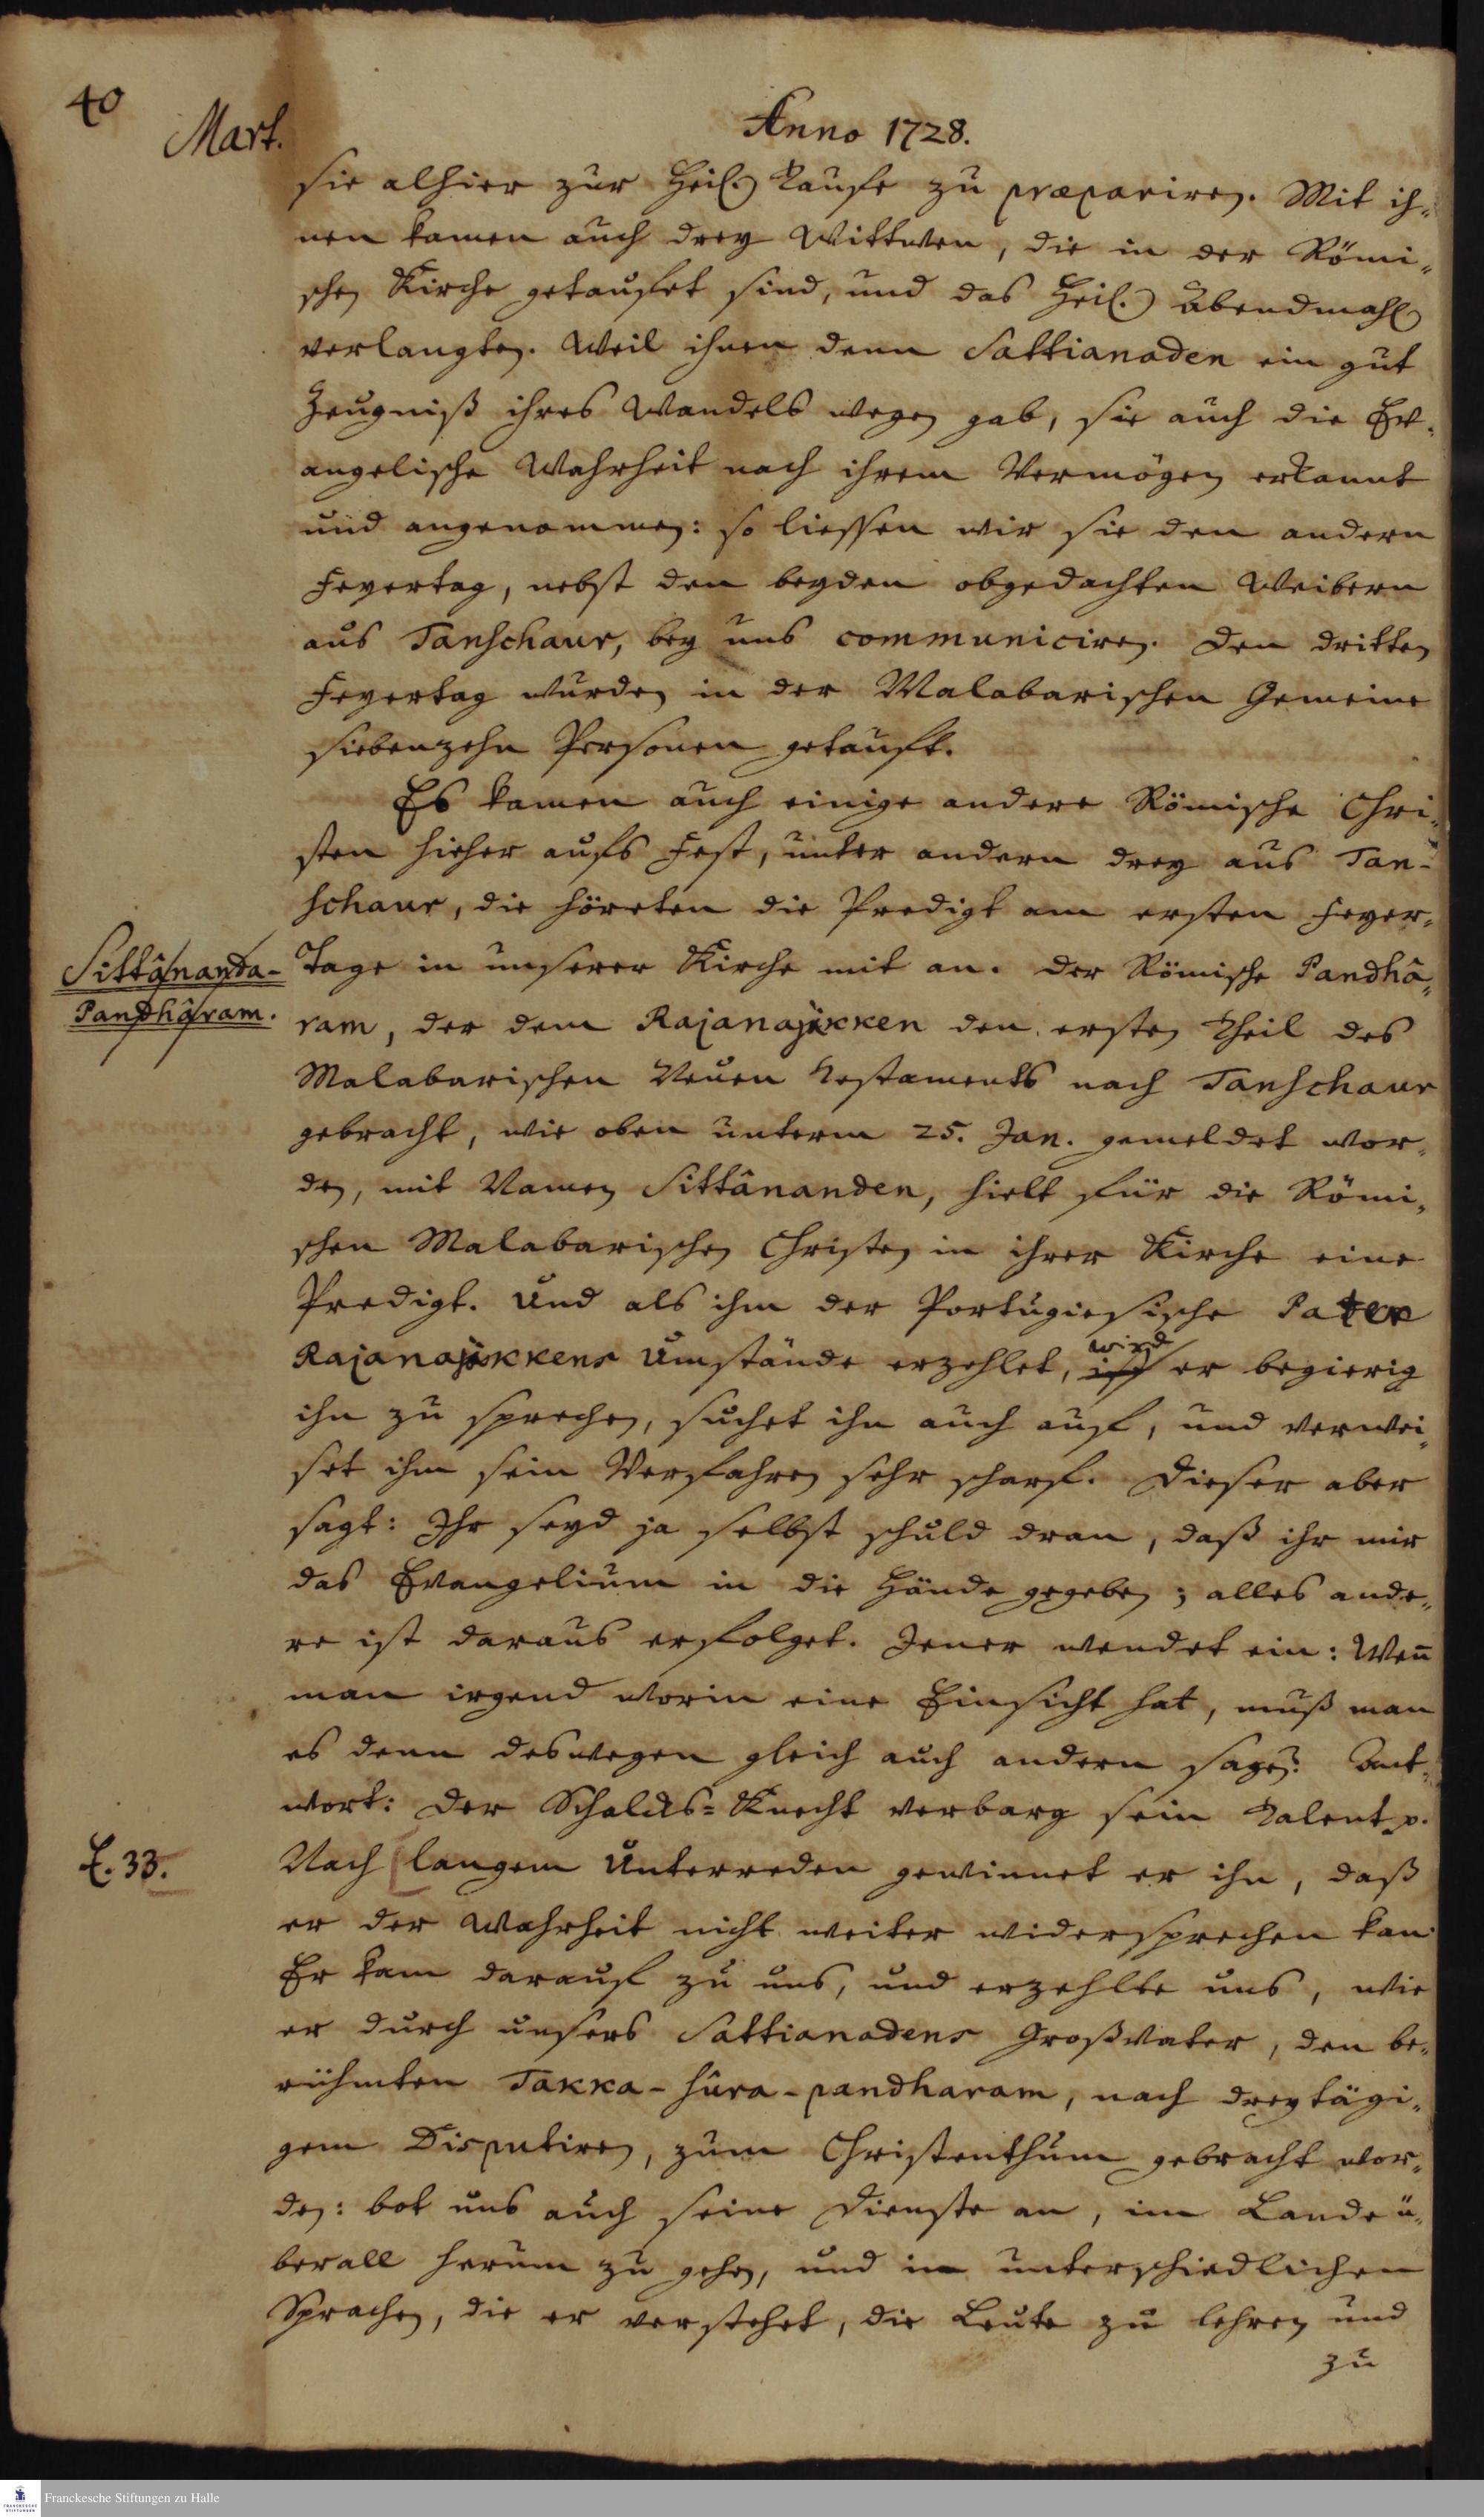 40
Mart.
Anno 1728.
sie alhier zur Heil. Taufe zu præpariren. Mit ih-
nen kamen auch drey Wittwen, die in der Römi-
schen Kirche getaufet sind, und das Heil. Abendmahl
verlangten. Weil ihnen denn Sattianaden ein gut
Zeugniß ihres Wandels wegen gab, sie auch die Ev-
angelische Wahrheit nach ihrem Vermögen erkannt
und angenommen: so liessen wir sie den andern
Feyertag, nebst den beyden obgedachten Weibern
aus Tanschaur, bey uns communiciren. Den dritten
Feyertag wurden in der Malabarischen Gemeine
siebenzehn Personen getauft.
Es kamen auch einige andere Römische Chri-
sten hieher aufs Fest, unter andern drey aus Tan-
schaur, die höreten die Predigt am ersten Feyer-
Sittânanda-
Tage in unserer Kirche mit an. Der Römische Pandhâ-
Pandhâram.
ram, der dem Rajanajkken den ersten Theil des
Malabarischen Neuen Testaments nach Tanschaur
gebracht, wie oben unterm 25. Jan. gemeldet wor-
den, mit Namen Sittânanden, hielt für die Römi-
schen Malabarischen Christen in ihrer Kirche eine
Predigt. Und als ihm der Portugiesische Pater
wird
Rajanajkkens Umstände erzehlet, ist er begierig
ihn zu sprechen, suchet ihn auch auf, und verwei-
set ihm sein Verfahren sehr scharf. Dieser aber
sagt: Ihr seyd ja selbst schuld dran, daß ihr mir
das Evangelium in die Hände gegeben; alles ande-
re ist daraus erfolget. Jener wendet ein: Wen̄
man irgend worin eine Einsicht hat, muß man
es denn deswegen gleich auch andern sagen? Ant-
wort: Der Schalcks-Knecht verbarg sein Talent p.
E. 33.
Nach langem Unterreden gewinnet er ihn, daß
er der Wahrheit nicht weiter widersprechen kan.
Er kam darauf zu uns, und erzehlte uns, wie
er durch unsers Sattianadens Großvater, den be-
rühmten Takka-sûra-pandharam, nach dreytägi-
gem Disputiren, zum Christenthum gebracht wor-
den: bot uns auch seine Dienste an, im Lande ü-
berall herum zu gehen, und in unterschiedlichen
Sprachen, die er verstehet, die Leute zu lehren und
zu
Franckesche Stiftungen zu Halle